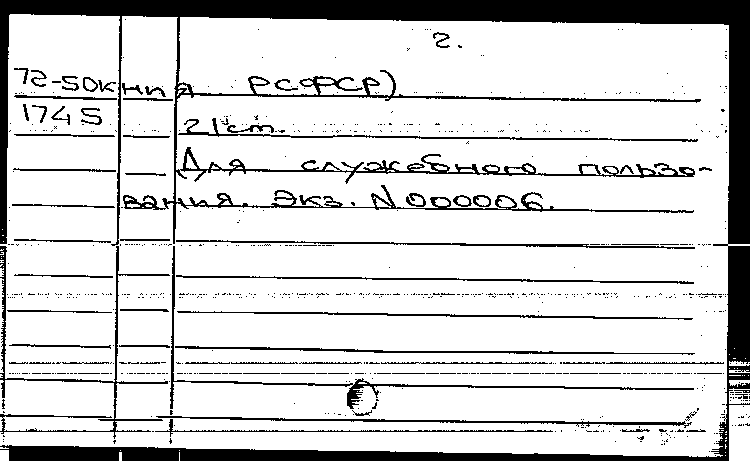 2.
72-50к ния РСФСР)
1745
21 ст.
Для служебного пользо-
вания. Экз. N 000006.